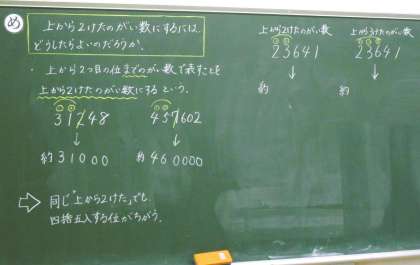 め
上から2けたのがい数にするには
どうしたらよいのだろうか。
・上から2つ目の位までのがい数で表すことを
上から2けたのがい数にする という。
31248
457602
↓
↓
約31000
約460000
⇨ 同じ"上から2けた"でも
四捨五入する位がちがう。
上から2けたのがい数
23641
↓
約
上から3けたのがい数
23641
↓
約